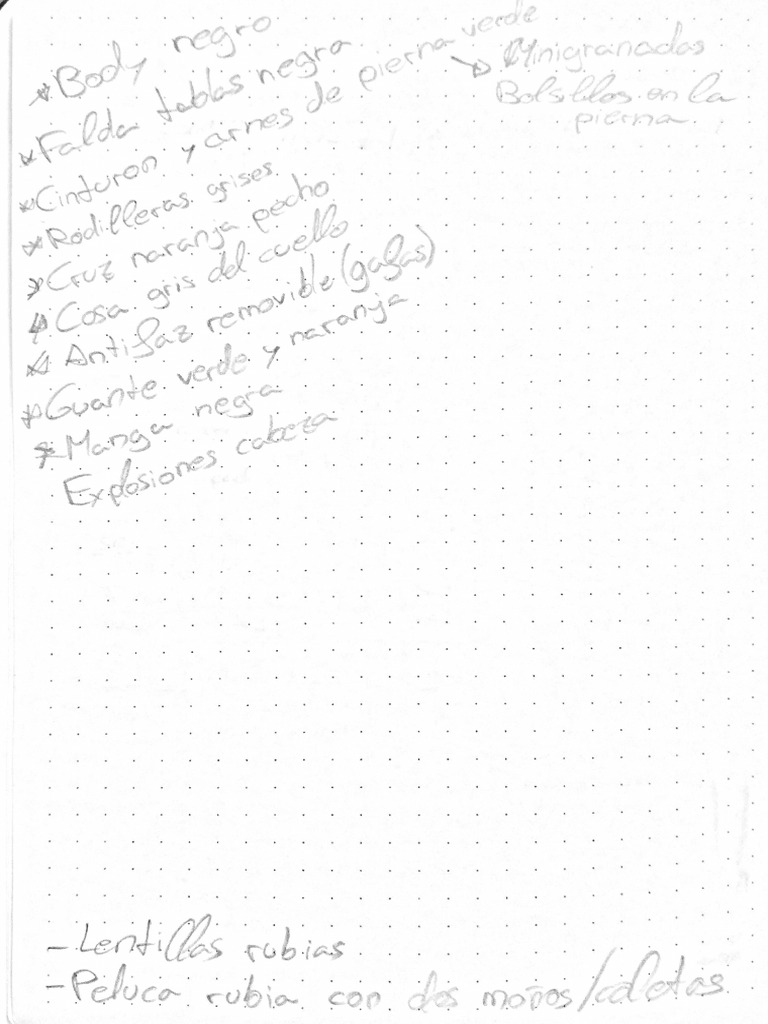 * Body negro
* Falda tablas negra
* Cinturon y arnes de pierna verde
→ Minigranadas
Bolsillos en la
pierna
* Rodilleras grises
* Cruz naranja pecho
* Cosa gris del cuello
* Antifaz removible (gafas)
* Guante verde y naranja
* Manga negra
Explosiones cabeza
- Lentillas rubias
- Peluca rubia con dos moños/coletas